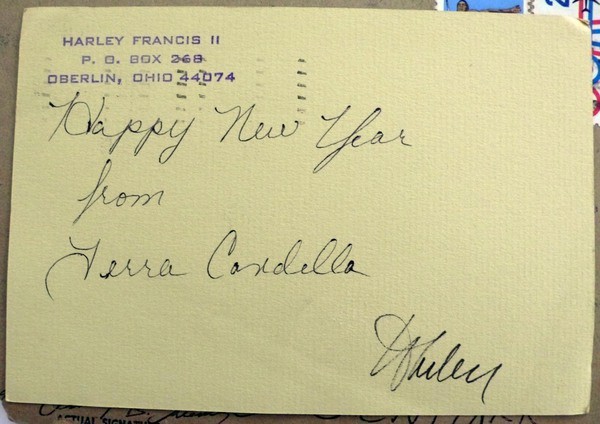 HARLEY FRANCIS II
P. O. BOX 268
OBERLIN, OHIO 44074
Happy New Year
from
Terra Candella
Harley
ACTUAL SIGNATU